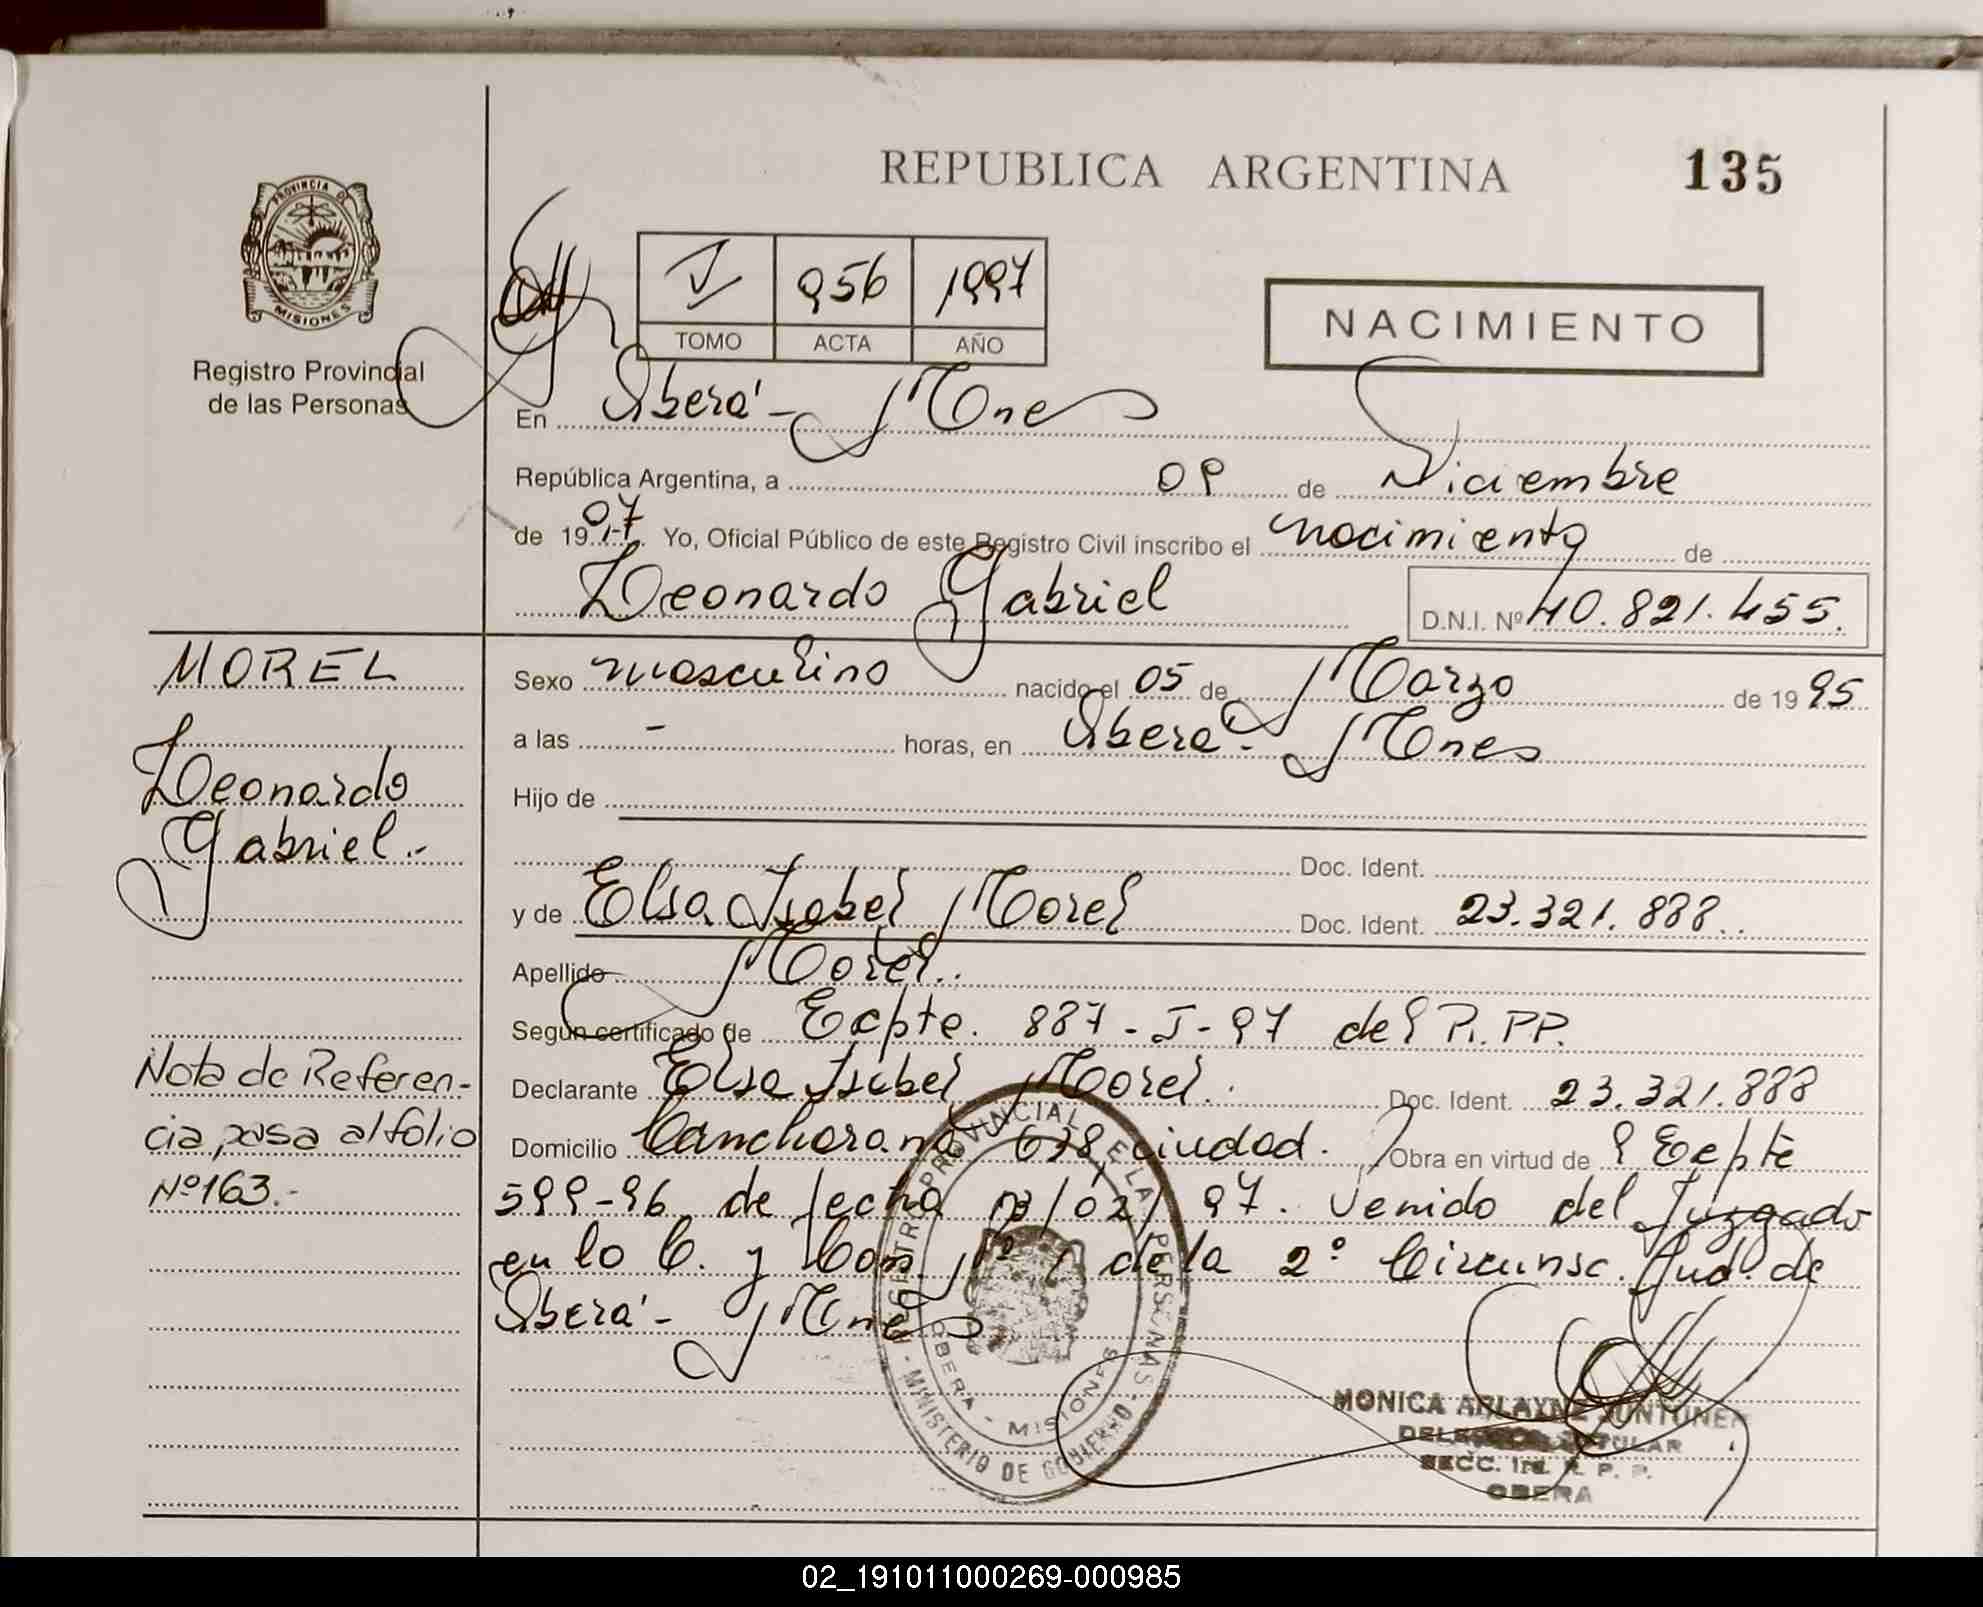 REPUBLICA ARGENTINA
135
PROVINCIA DE
MISIONES
Registro Provincial
de las Personas
V 956 1997
TOMO ACTA AÑO
NACIMIENTO
En Oberá - Mnes
República Argentina, a 09 de Diciembre
de 19 97. Yo, Oficial Público de este Registro Civil inscribo el nacimiento de
Leonardo Gabriel
D.N.I. Nº 40.821.455.
MOREL
Leonardo
Gabriel.-
Nota de Referen-
cia pasa al folio
Nº 163.-
Sexo masculino nacido el 05 de Marzo de 19 95
a las - horas, en Oberá - Mnes
Hijo de
Doc. Ident.
y de Elsa Isabel Morel Doc. Ident. 23.321.888.
Apellido Morel.
Según certificado de Ecpte. 887-I-97 del R.PP.
Declarante Elsa Isabel Morel. Doc. Ident. 23.321.888
Domicilio 678, ciudad. Obra en virtud de Ecpte
599-96 de fecha /02/97. Venido del Juzgado
en lo C. y Com. Nº 1 de la 2º Circunsc. Jud. de
Oberá - Mnes
REGISTRO PROVINCIAL DE LAS PERSONAS - MINISTERIO DE GOBIERNO -
OBERA - MISIONES
MONICA ARLAYNE JUNTUNEN
TITULAR
SECC. Ira. R. P. P.
OBERA
02_191011000269-000985